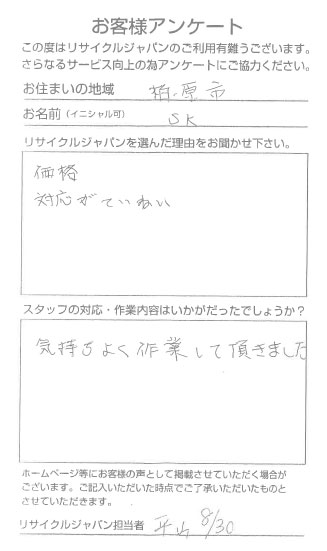 お客様アンケート
この度はリサイクルジャパンのご利用有難うございます。
さらなるサービス向上の為アンケートにご協力ください。
お住まいの地域 柏原市
お名前(イニシャル可) SK
リサイクルジャパンを選んだ理由をお聞かせ下さい。
価格
対応がていねい
スタッフの対応・作業内容はいかがだったでしょうか?
気持ちよく作業して頂きました
ホームページ等にお客様の声として掲載させていただく場合が
ございます。ご記入いただいた時点でご了承いただいたものと
させていただきます。
リサイクルジャパン担当者 平山 8/30